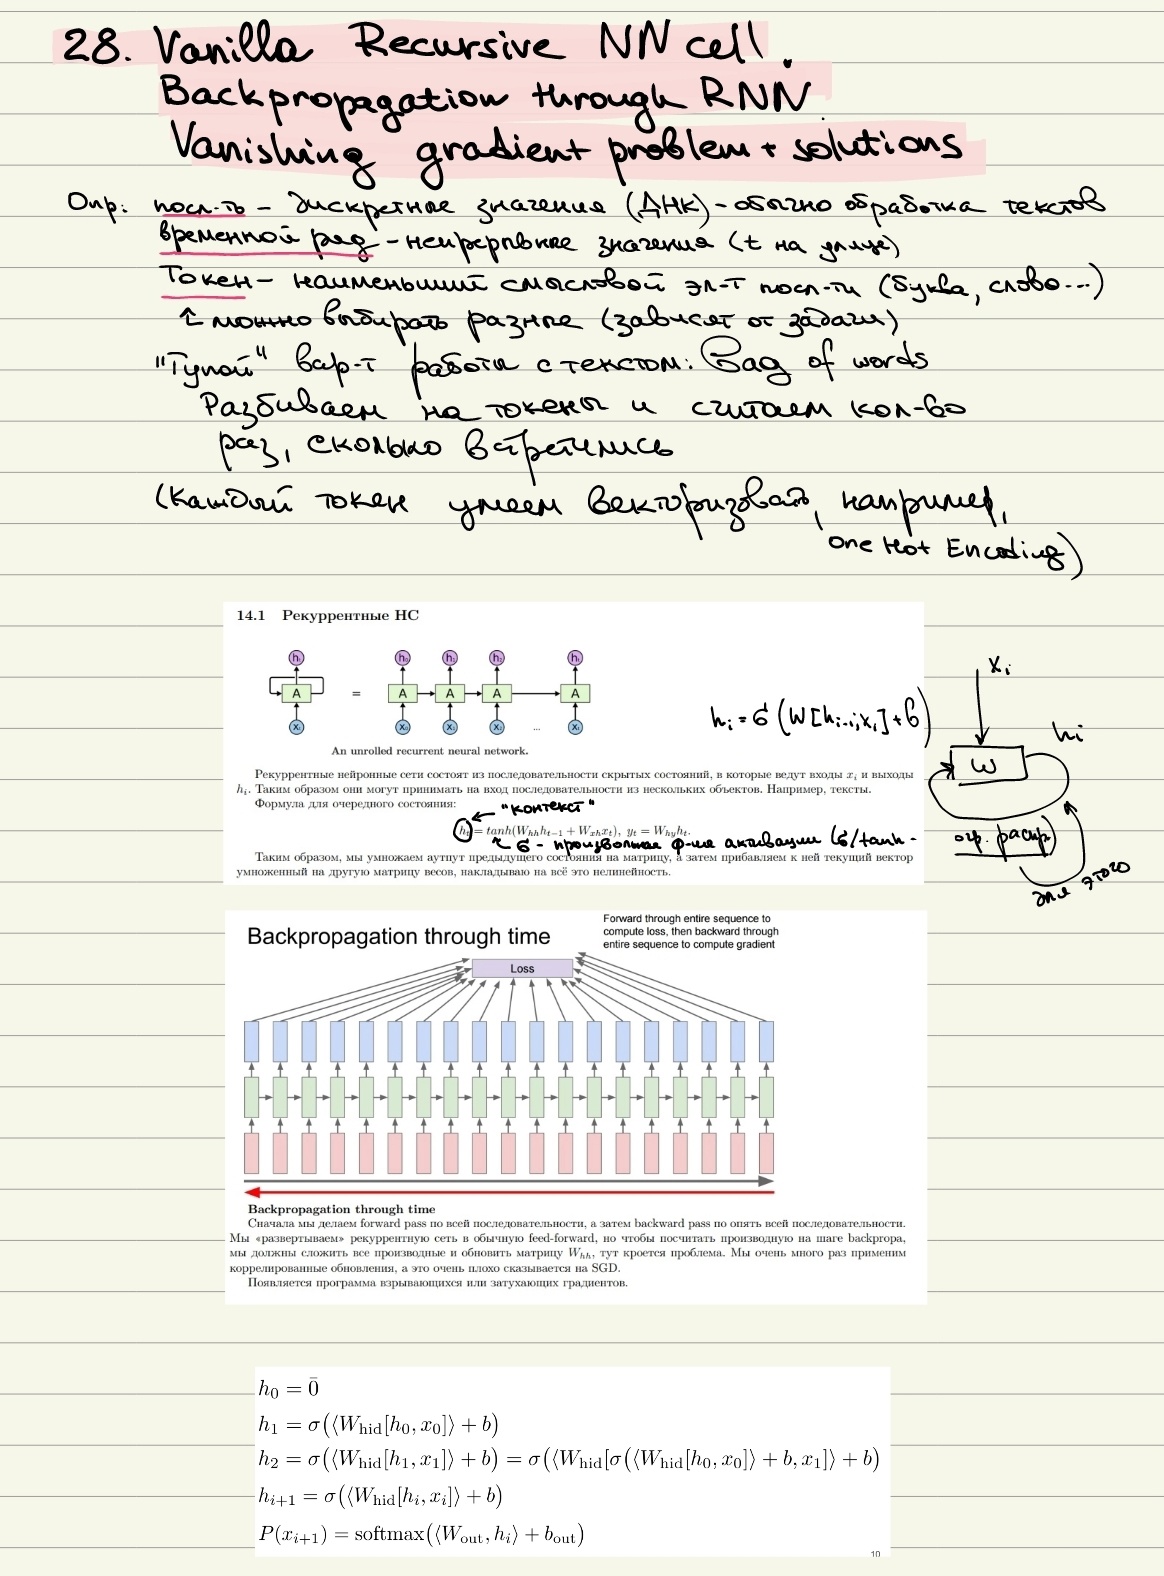 28. Vanilla Recursive NN cell.
Backpropagation through RNN
Vanishing gradient problem + solutions
Опр: посл-ть - дискретные значения (ДНК) - обычно обработка текстов
временной ряд - непрерывные значения (t на улице)
Токен - наименьший смысловой эл-т посл-ти (буква, слово...)
↑ можно выбирать разные (зависят от задачи)
"Тупой" вар-т работы с текстом: Bag of words
Разбиваем на токены и считаем кол-во
раз, сколько встретились
(Каждый токен умеем векторизовать, например,
One Hot Encoding)
14.1 Рекуррентные НС
hₜ h₀ h₁ h₂ hₜ
A = A A A A
xₜ x₀ x₁ x₂ ... xₜ
An unrolled recurrent neural network.
hᵢ = σ(W[hᵢ₋₁; xᵢ] + b)
xᵢ
hᵢ
W
огр. распр)
для этого
Рекуррентные нейронные сети состоят из последовательности скрытых состояний, в которые ведут входы xᵢ и выходы
hᵢ. Таким образом они могут принимать на вход последовательности из нескольких объектов. Например, тексты.
Формула для очередного состояния:
← "контекст"
hₜ = tanh(W_hh hₜ₋₁ + W_xh xₜ), yₜ = W_hy hₜ.
↖ σ - произвольная ф-ия активации (σ/tanh -
Таким образом, мы умножаем аутпут предыдущего состояния на матрицу, а затем прибавляем к ней текущий вектор
умноженный на другую матрицу весов, накладываю на всё это нелинейность.
Backpropagation through time
Forward through entire sequence to
compute loss, then backward through
entire sequence to compute gradient
Loss
Backpropagation through time
Сначала мы делаем forward pass по всей последовательности, а затем backward pass по опять всей последовательности.
Мы «развертываем» рекуррентную сеть в обычную feed-forward, но чтобы посчитать производную на шаге backpropa,
мы должны сложить все производные и обновить матрицу W_hh, тут кроется проблема. Мы очень много раз применим
коррелированные обновления, а это очень плохо сказывается на SGD.
Появляется программа взрывающихся или затухающих градиентов.
h₀ = 0̄
h₁ = σ(⟨W_hid[h₀, x₀]⟩ + b)
h₂ = σ(⟨W_hid[h₁, x₁]⟩ + b) = σ(⟨W_hid[σ(⟨W_hid[h₀, x₀]⟩ + b, x₁]⟩ + b)
hᵢ₊₁ = σ(⟨W_hid[hᵢ, xᵢ]⟩ + b)
P(xᵢ₊₁) = softmax(⟨W_out, hᵢ⟩ + b_out)
10